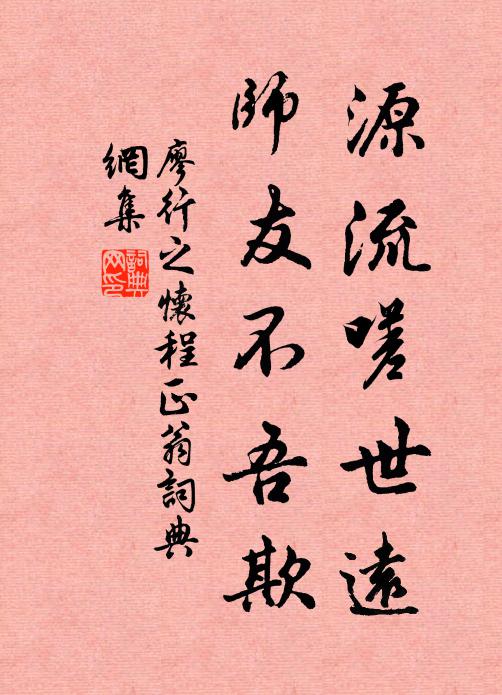 源流嗟世遠
師友不吾欺
廖行之懷程正翁詞典
網集
詞典网印